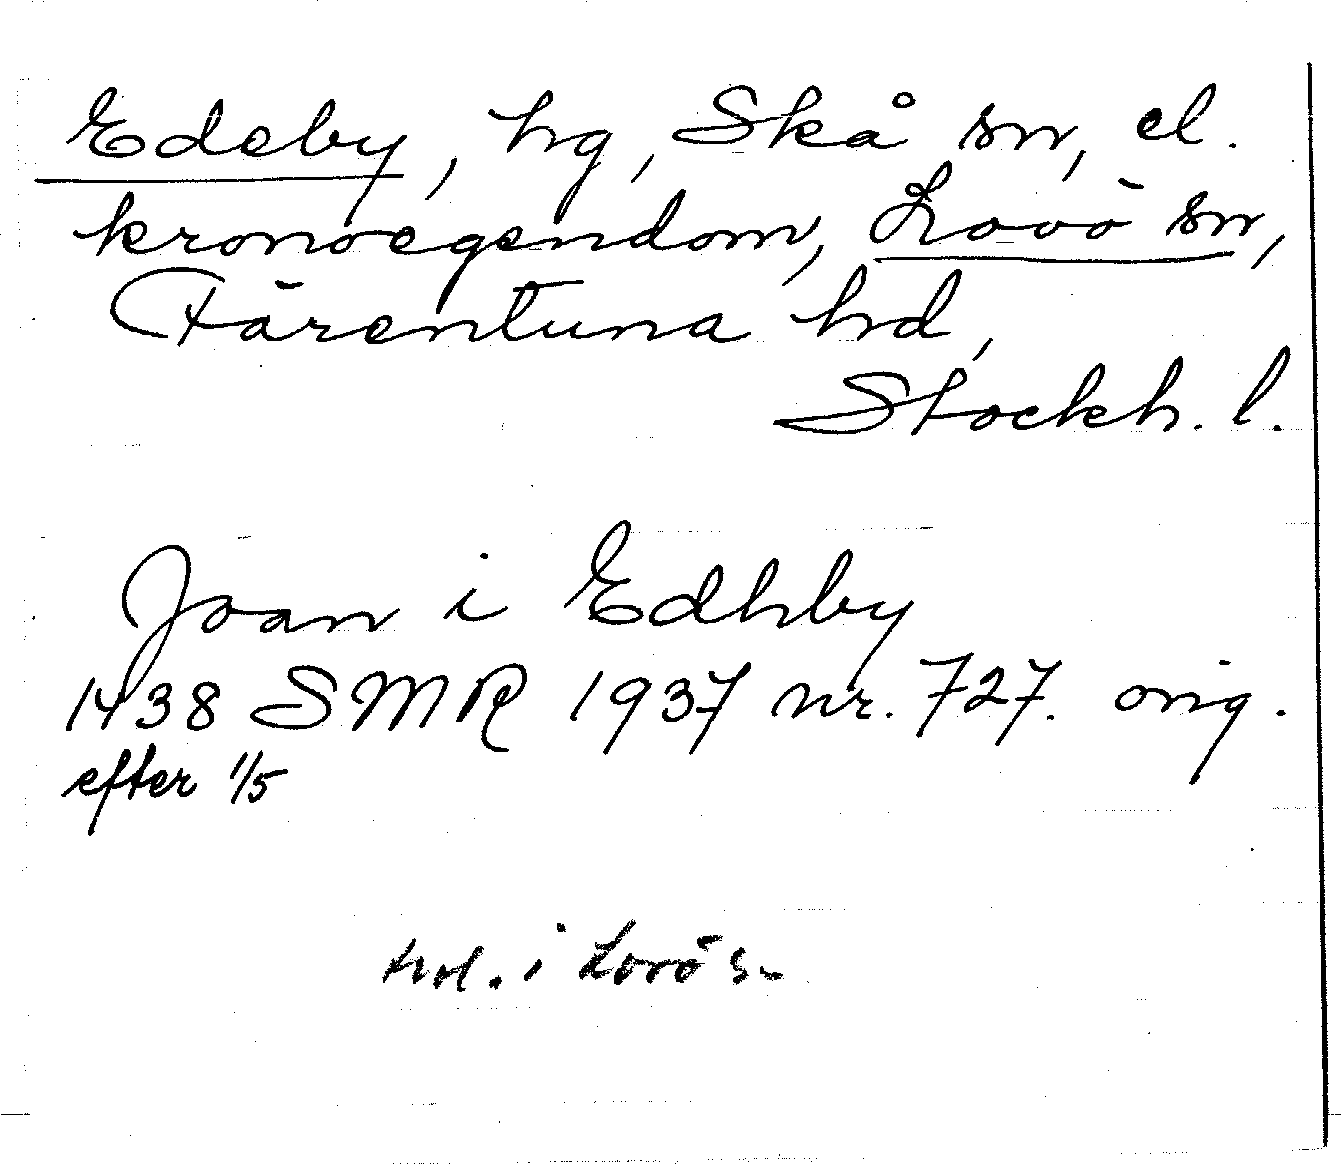 Edeby, hg, Skå sn, el.
kronoegendom, Lovö sn,
Färentuna hd,
Stockh. l.
Joan i Edhby
1438 SMR 1937 nr. 727. orig.
efter 1/5
trol. i Lovö sn